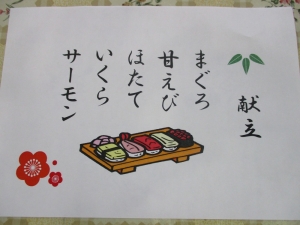 献立
まぐろ
甘えび
ほたて
いくら
サーモン